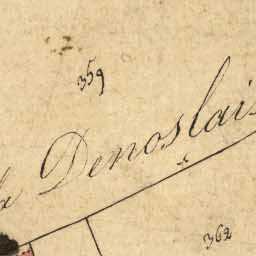 359
Denoslais
362